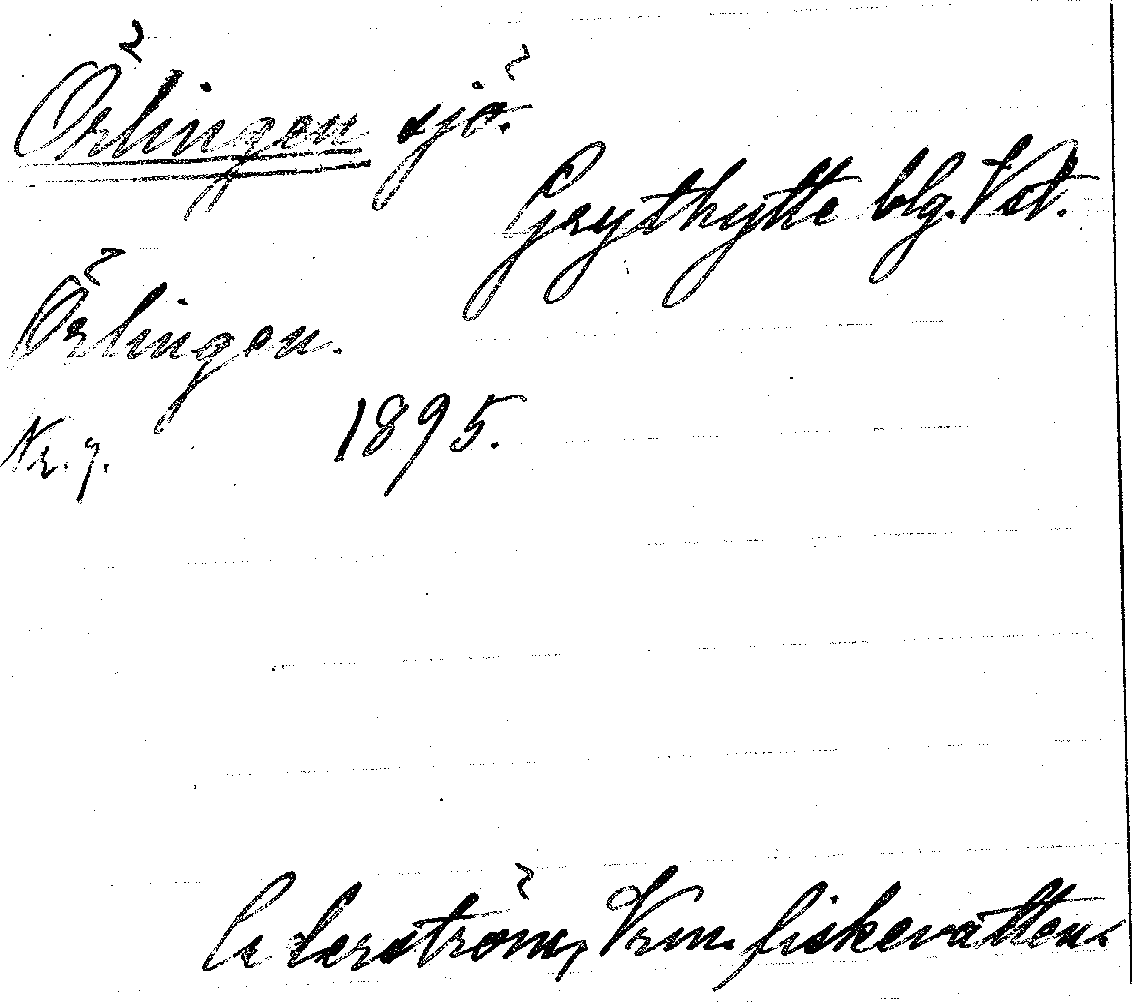 Örlingen sjö.
Grythytte blg. Vstm.
Örlingen.
Nr. 7. 1895.
Cederström, Vrm. fiskevatten.